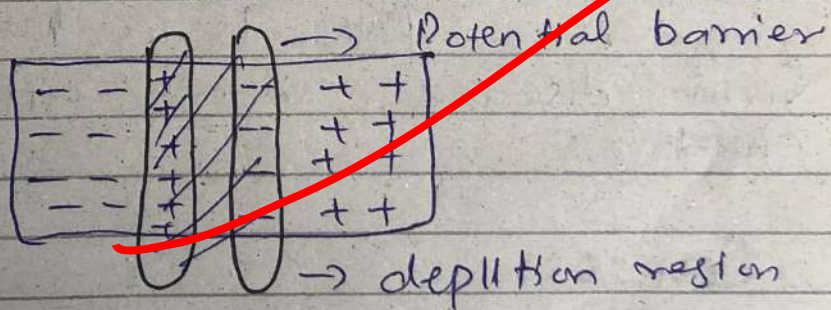 Potential barrier
- - + -- + +
-- - + -- + +
- - + - + +
- - + - + +
deplltion region